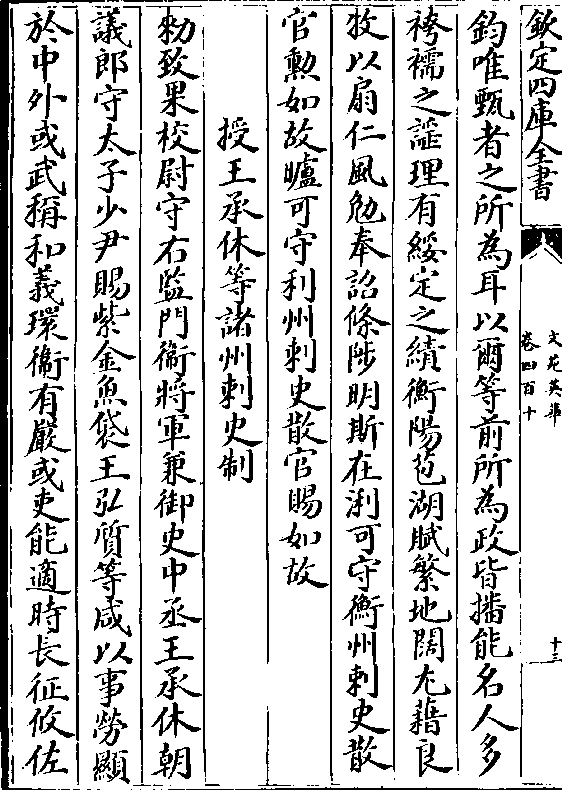 欽定四庫全書
文苑英華
卷四百十
十三
鈞唯甄者之所為耳以爾等前所為政皆播能名人多
袴襦之謡理有綏定之績衡陽苞湖賦繁地闊尤藉良
牧以扇仁風勉奉詔條陟明斯在浰可守衡州刺史散
官勲如故曥可守利州刺史散官賜如故
授王承休等諸州刺史制
勅致果校尉守右監門衞將軍兼御史中丞王承休朝
議郎守太子少尹賜紫金魚袋王弘質等咸以事勞顯
於中外或武稱和義環衞有嚴或吏能適時長征攸佐